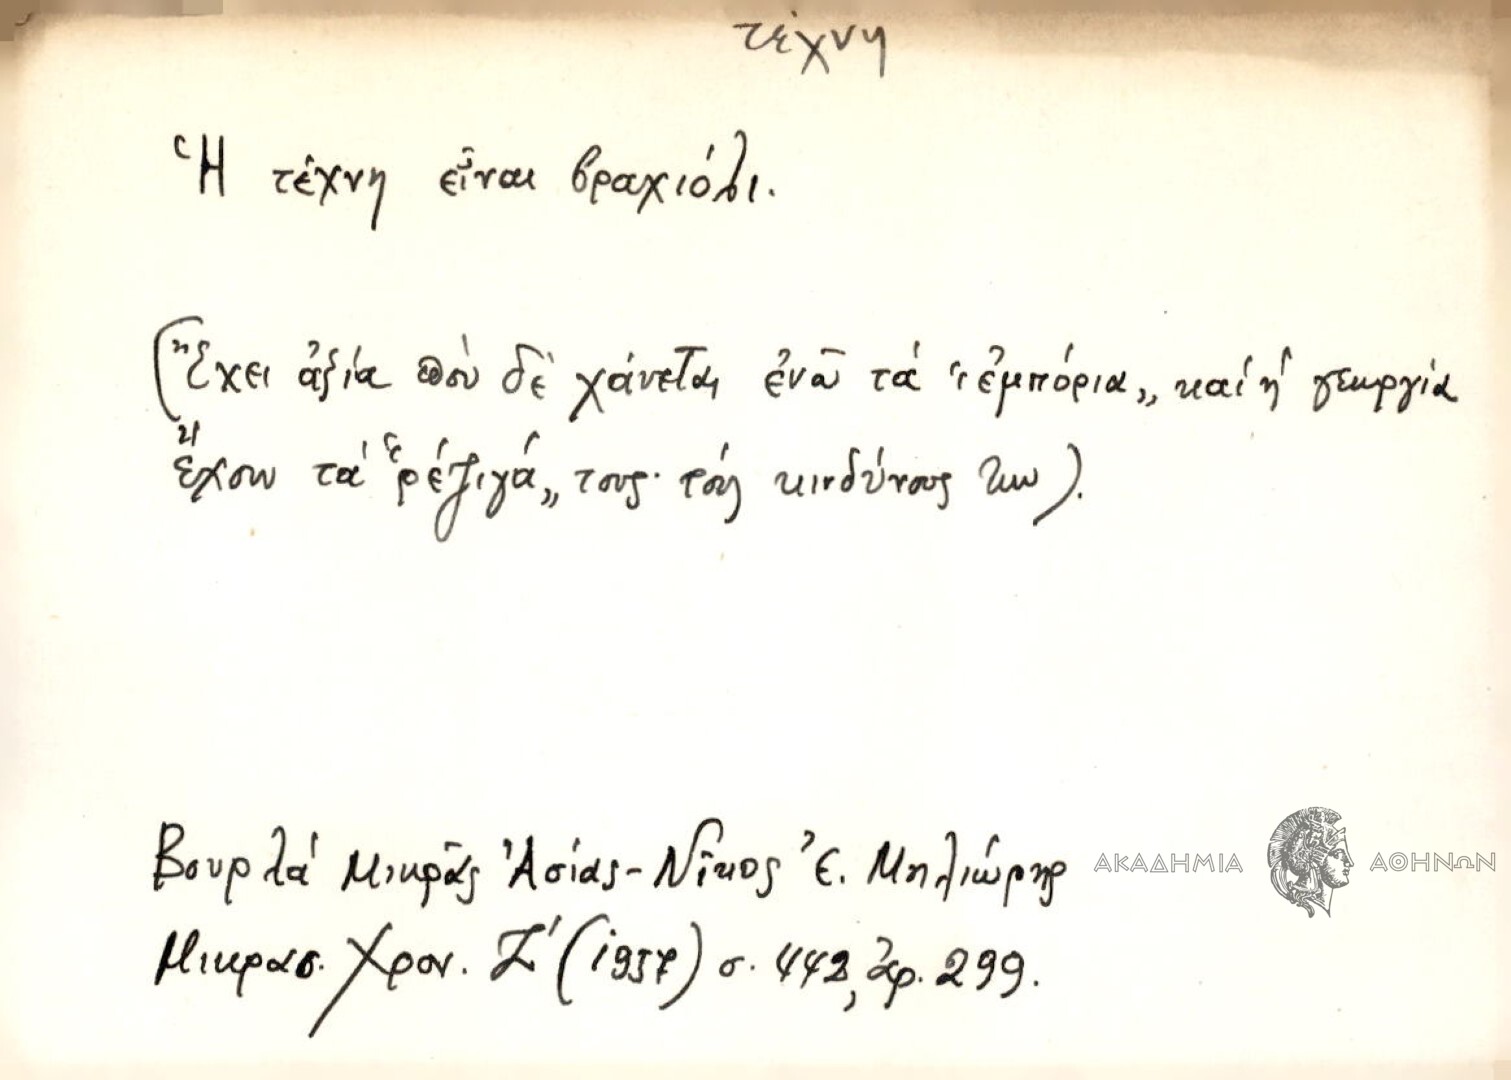 τέχνη
Ἡ τέχνη εἶναι βραχιόλι.
(Ἔχει ἀξία ποὺ δὲ χάνεται, ἐνῶ τὰ "ἐμπόρια„ καὶ ἡ γεωργία
ἔχουν τὰ "ρέζιγά„ τους· τοὺς κινδύνους των).
Βουρλὰ Μικρᾶς Ἀσίας - Νῖκος Ἐ. Μηλιώρης
Μικρασ. Χρον. Ζ' (1957) σ. 442, ἀρ. 299.
ΑΚΑΔΗΜΙΑ ΑΘΗΝΩΝ